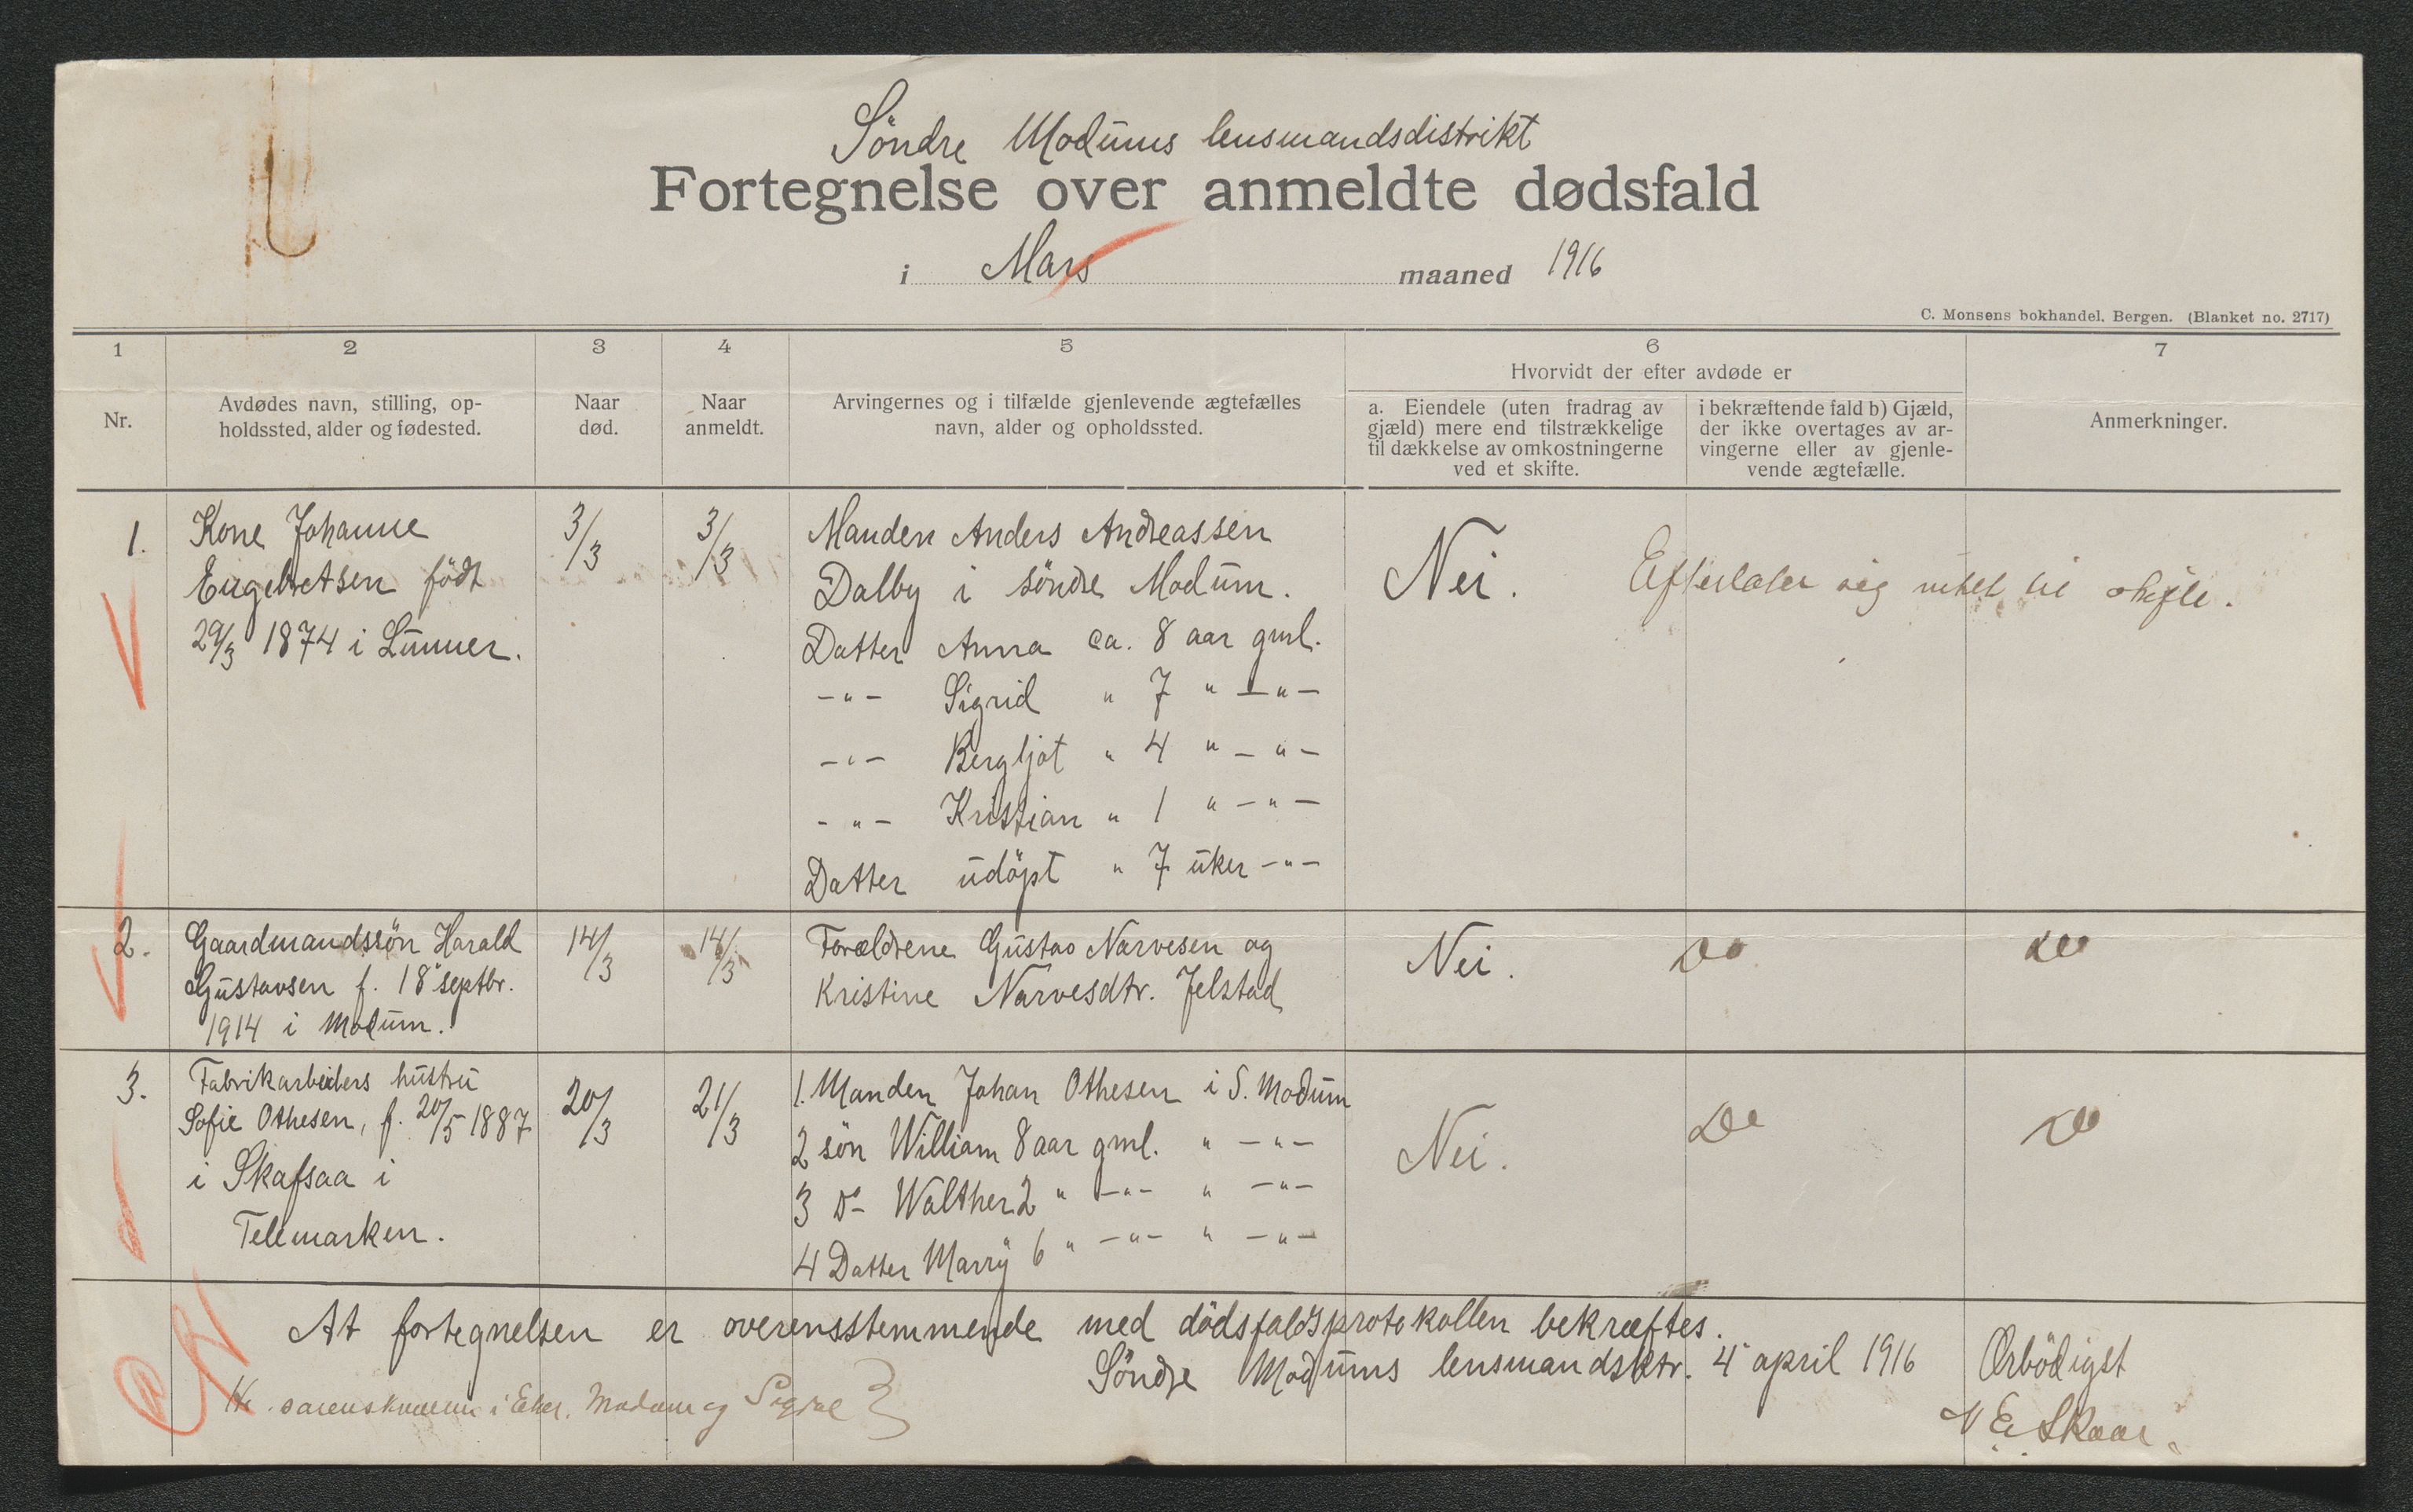 Söndre Modums lensmandsdistrikt
Fortegnelse over anmeldte dødsfald
i Mars maaned 1916
C. Monsens bokhandel. Bergen. (Blanket no. 2717)
1 2 3 4 5 6 7
Hvorvidt der efter avdøde er
Nr.
Avdødes navn, stilling, op-
holdssted, alder og fødested.
Naar
død.
Naar
anmeldt.
Arvingernes og i tilfælde gjenlevende ægtefælles
navn, alder og opholdssted.
a. Eiendele (uten fradrag av
gjæld) mere end tilstrækkelige
til dækkelse av omkostningerne
ved et skifte.
i bekræftende fald b) Gjæld,
der ikke overtages av ar-
vingerne eller av gjenle-
vende ægtefælle.
Anmerkninger.
1.
Kone Johanne
Engebretsen födt
29/3 1874 i Lunner.
3/3
3/3
Manden Anders Andreassen
Dalby i söndre Modum.
Datter Anna ca. 8 aar gml.
-"- Sigrid " 7 " -"-
-"- Bergljot " 4 " -"-
-"- Kristian " 1 " -"-
Datter udöpt " 7 uker -"-
Nei.
Efterlater sig intet til skifte.
2.
Gaardmandssön Harald
Gustavsen f. 18 septbr.
1914 i Modum.
14/3
14/3
Forældrene Gustav Narvesen og
Kristine Narvesdtr. Jelstad
Nei.
Do
Do
3.
Fabrikarbeiders hustru
Sofie Othesen, f. 20/5 1887
i Skafsaa i
Telemarken.
20/3
21/3
1. Manden Johan Othesen i S. Modum
2 sön William 8 aar gml. " -"-
3 Do Walther 2 " -"- " -"-
4 Datter Marry 6 " -"- " -"-
Nei.
Do
Do
At fortegnelsen er overensstemmende med dödsfaldsprotokollen bekræftes.
Söndre Modums lensmandsktr. 4 april 1916
Ærbödigst
Skaar.
sorenskriveren i Eker, Modum og Sigdal